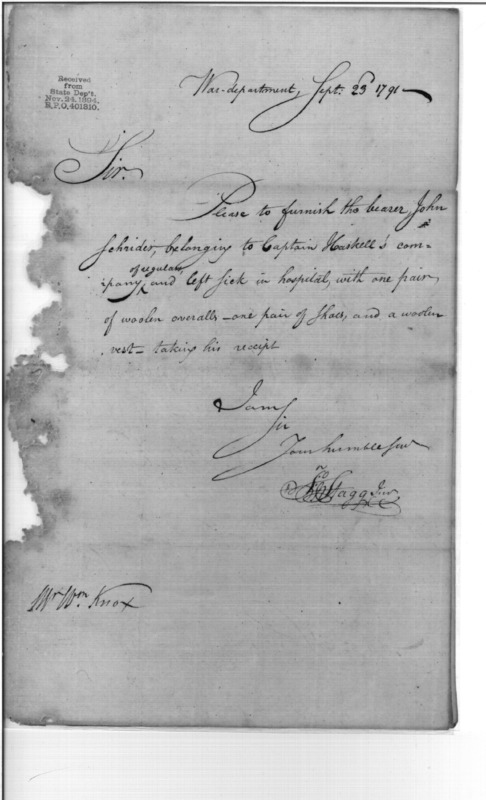 Received
from
State Dep't.
Nov. 24, 1894,
R.P.O, 401810.
War-department, Sept. 23d 1791
Sir,
Please to furnish the bearer, John
Schrider, belonging to Captain Haskell's com-
of regulars,
pany, and left sick in hospital, with one pair
of woolen overalls - one pair of shoes, and a woolen
vest - taking his receipt
I am
Sir
Your humble Serv
Jno Stagg Junr
Mr Wm. Knox